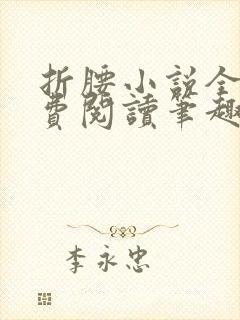 折腰小説全
費閱讀筆趣
李永忠